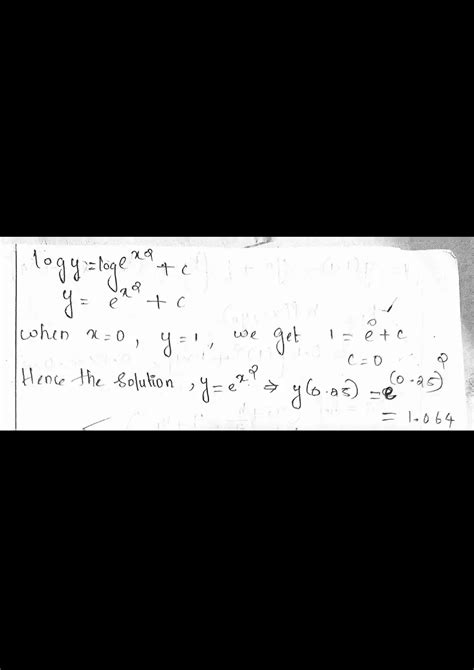 log y = log e^x2 + c
y = e^x2 + c
when x=0, y=1, we get 1 = e^0 + c
c=0
Hence the Solution, y=e^x2 ⇒ y(0.25) = e^(0.25)^2
= 1.064